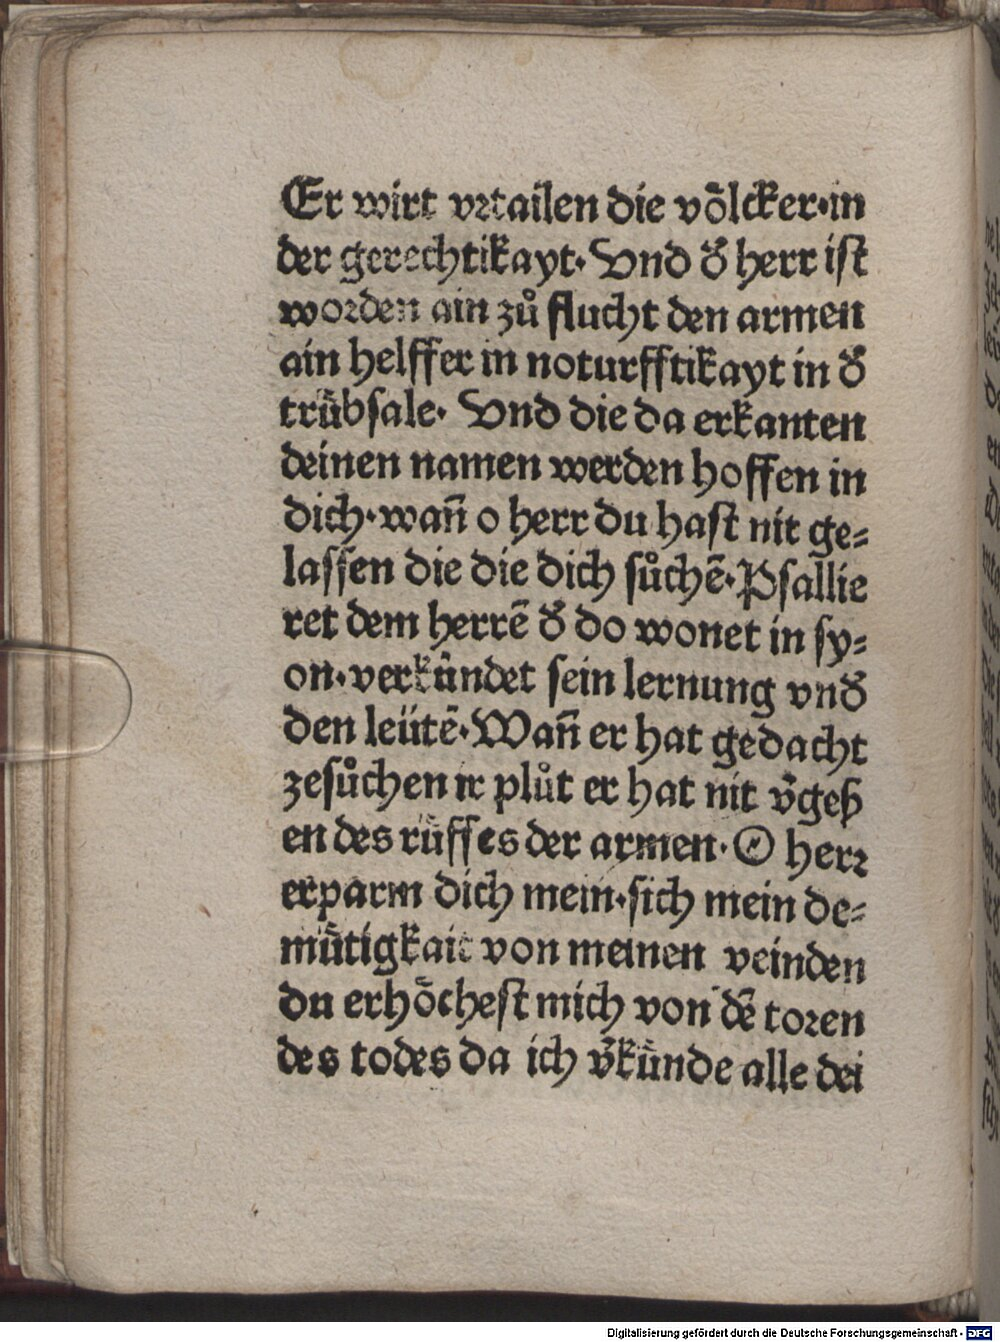 Er wirt vrtailen die voͤlcker·in
der gerechtikayt· Vnd d̕ herr ist
worden ain zuͦ flucht den armen
ain helffer in noturfftikayt in d̕
truͤbsale· Vnd die da erkanten
deinen namen werden hoffen in
dich·wañ o herr du hast nit ge⸗
lassen die die dich suͦchẽ·Psallie
ret dem herrẽ d̕ do wonet in sy⸗
on·verkündet sein lernung vnd̕
den leütẽ·Wañ er hat gedacht
zesuͦchen ir pluͦt er hat nit v̕geß
en des ruͤffes der armen· O herꝛ
erparm dich mein·sich mein de⸗
muͤtigkait von meinen veinden
du erhoͤchest mich von dẽ toꝛen
des todes da ich v̕künde alle dei
Digitalisierung gefördert durch die Deutsche Forschungsgemeinschaft - DFG